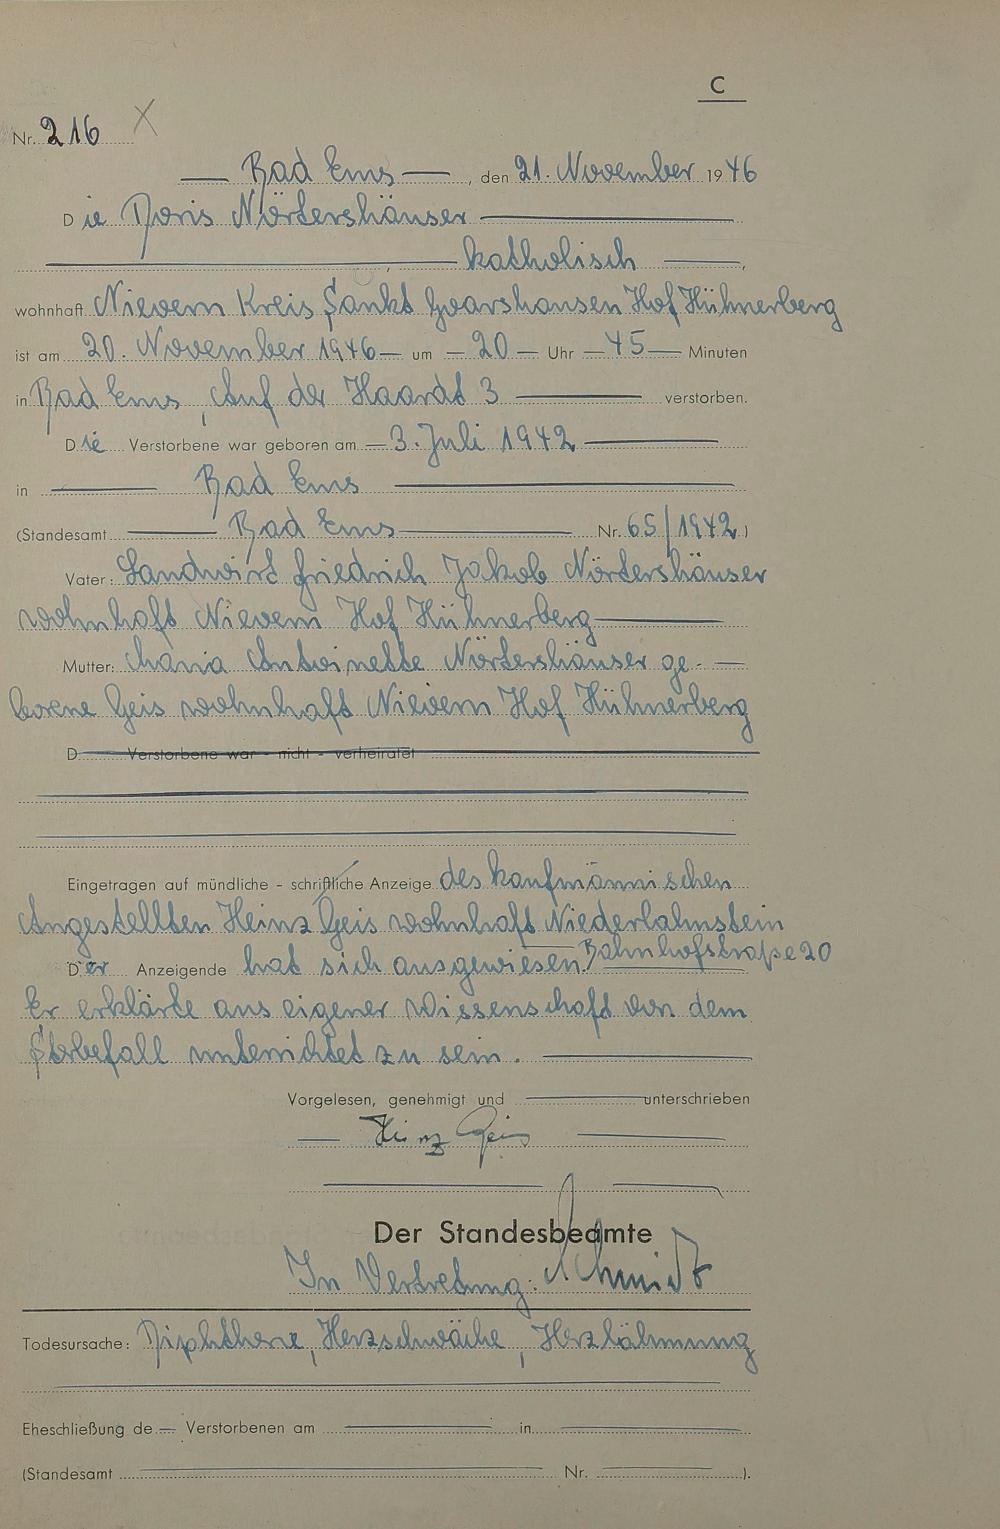 C
Nr. 216
Bad Ems, den 21. November 1946
Die Doris Nörtershäuser
katholisch,
wohnhaft Nievern Kreis Sankt Goarshausen Hof Hühnerberg
ist am 20. November 1946 um 20 Uhr 45 Minuten
in Bad Ems, Auf der Haardt 3 verstorben.
Die Verstorbene war geboren am 3. Juli 1942
in Bad Ems
(Standesamt Bad Ems Nr. 65/1942)
Vater: Landwirt Friedrich Jakob Nörtershäuser
wohnhaft Nievern Hof Hühnerberg
Mutter: Maria Antoinette Nörtershäuser ge-
borene Geis wohnhaft Nievern Hof Hühnerberg
D Verstorbene war - nicht - verheiratet
Eingetragen auf mündliche - schriftliche Anzeige des kaufmännischen
Angestellten Heinz Geis wohnhaft Niederlahnstein
Bahnhofstraße 20
Der Anzeigende hat sich ausgewiesen.
Er erklärte aus eigener Wissenschaft von dem
Sterbefall unterrichtet zu sein.
Vorgelesen, genehmigt und unterschrieben
Heinz Geis
Der Standesbeamte
In Vertretung: Schmidt
Todesursache: Diphtherie, Herzschwäche, Herzlähmung
Eheschließung de Verstorbenen am in
(Standesamt Nr. ).